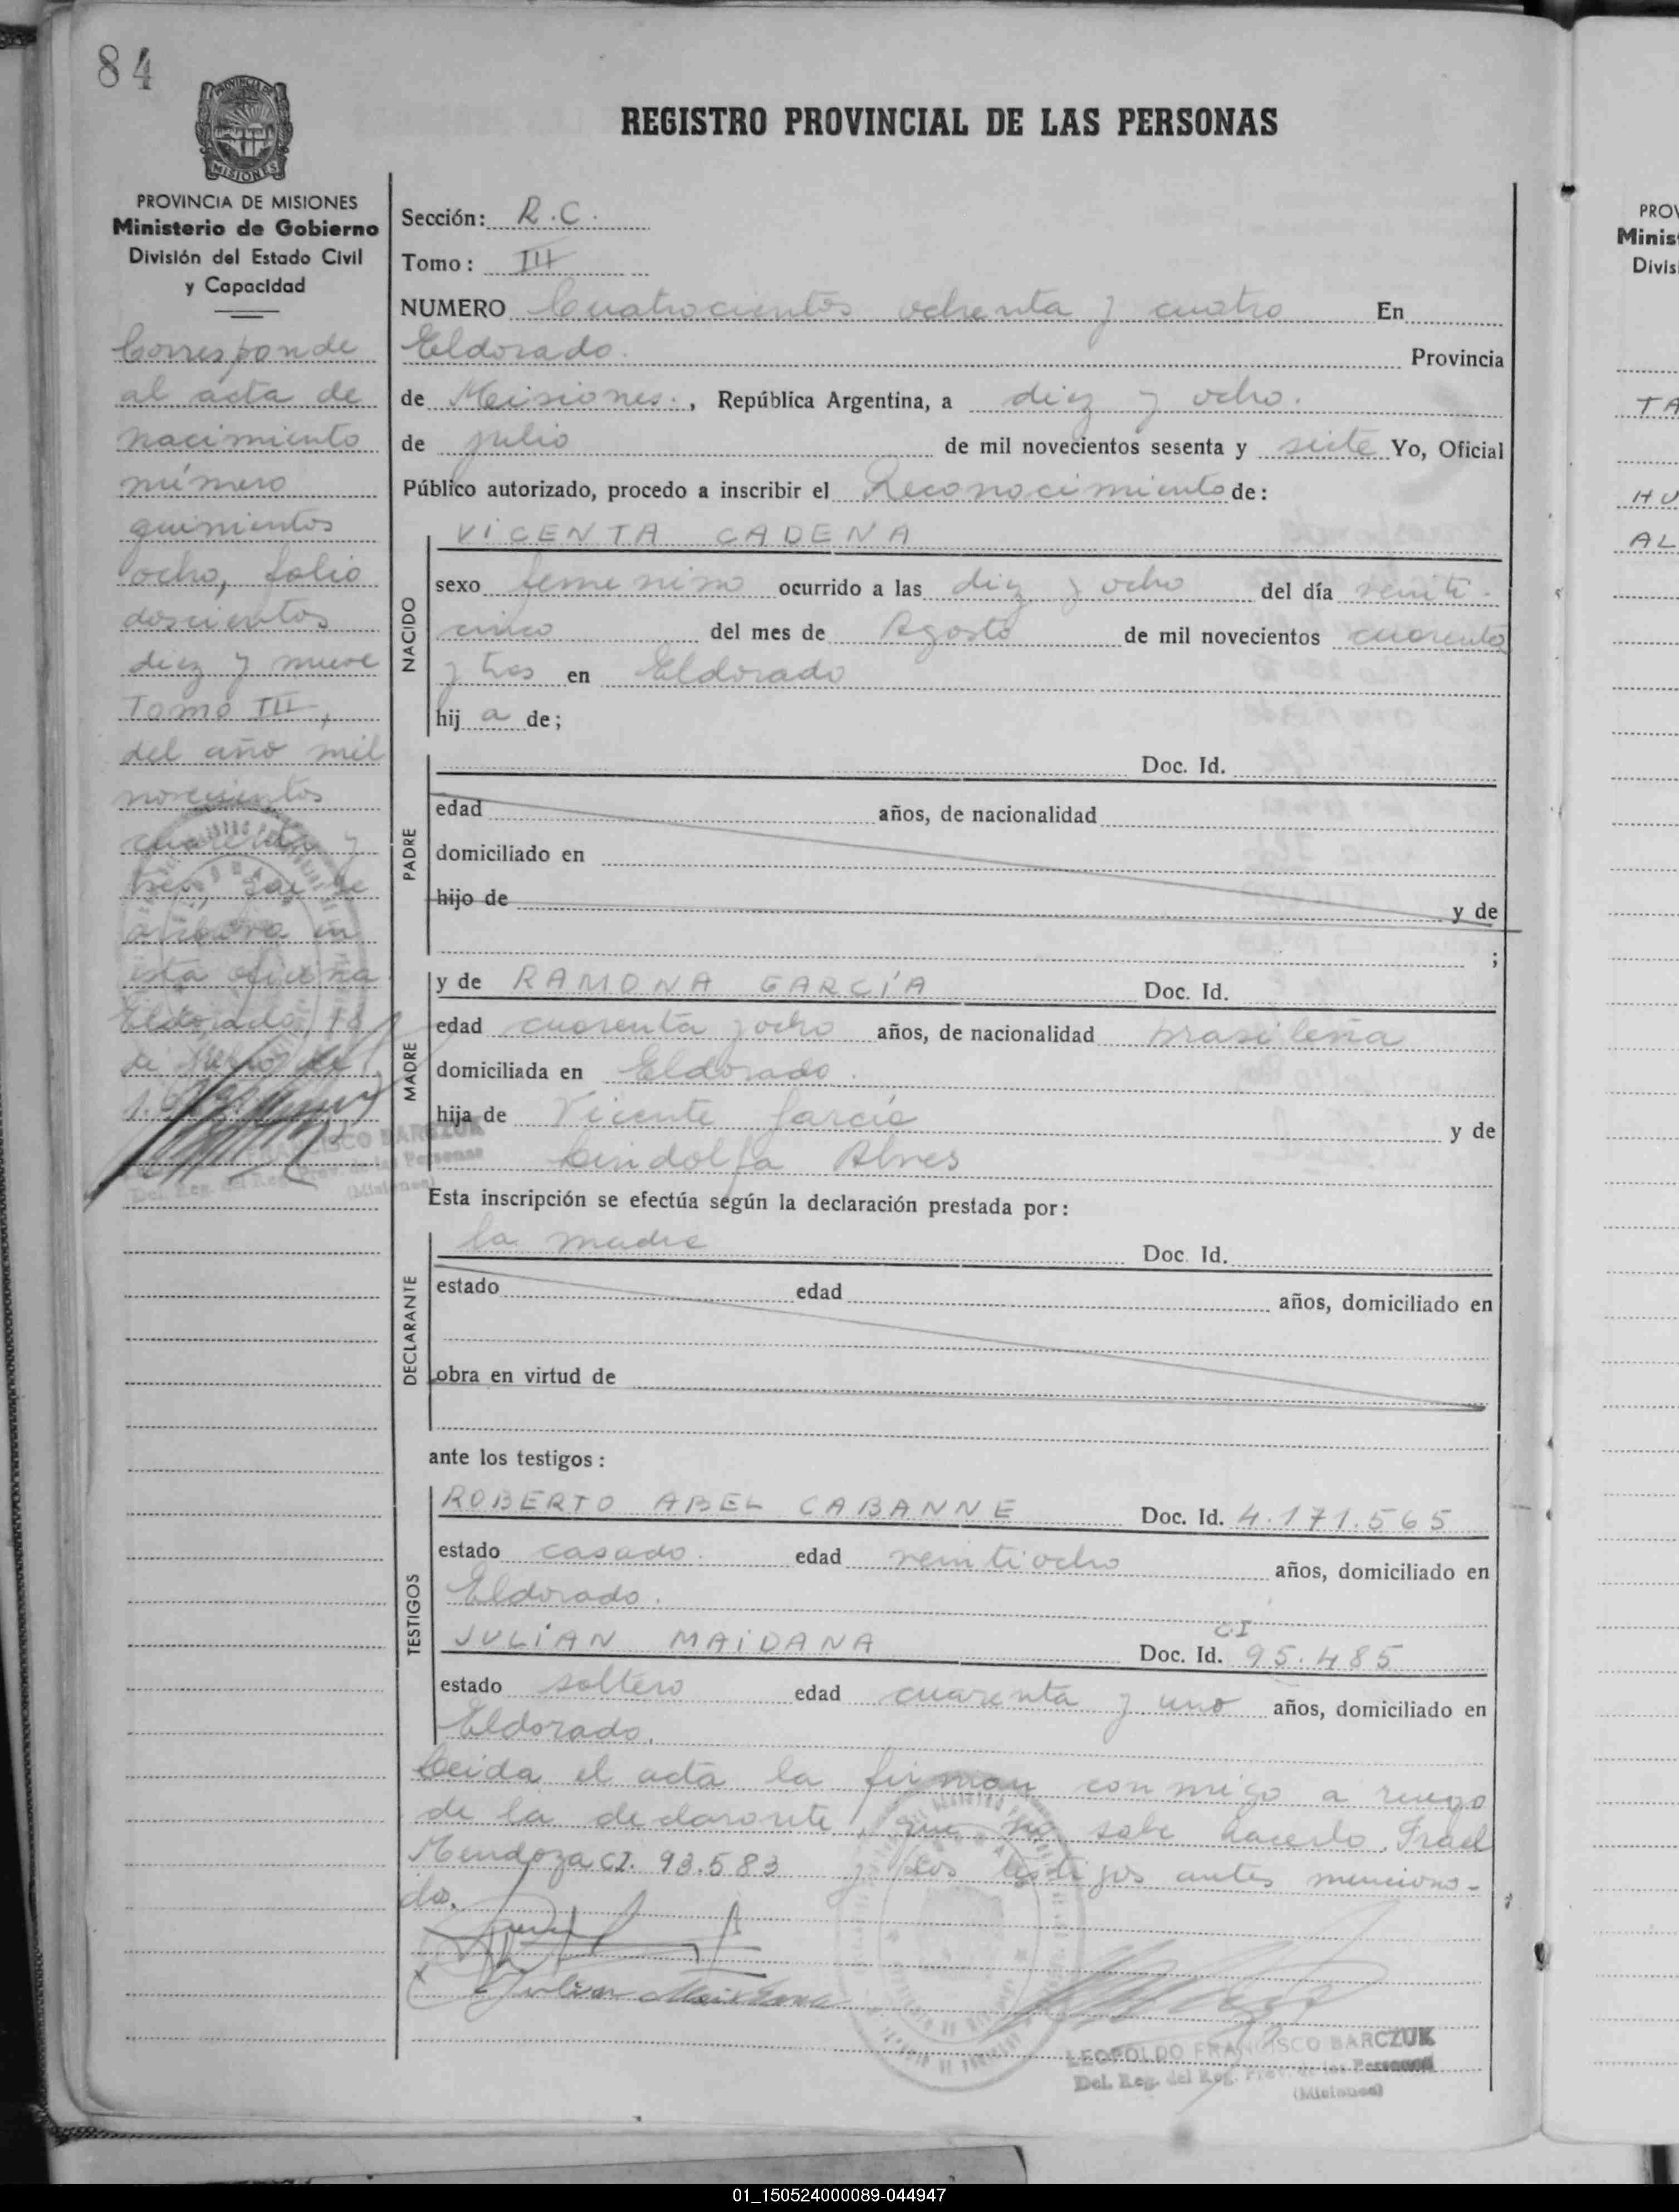 84
PROVINCIA DE MISIONES
MISIONES
PROVINCIA DE MISIONES
Ministerio de Gobierno
División del Estado Civil
y Capacidad
Corresponde
al acta de
nacimiento
número
quinientos
ocho, folio
doscientos
diez y nueve
Tomo III,
del año mil
novecientos
cuarenta y
tres, que se
archiva en
esta oficina
Eldorado, 18
de Julio de
REGISTRO PROVINCIAL DE LAS PERSONAS
Sección: R.C.
Tomo: III
NUMERO Cuatrocientos ochenta y cuatro En
Eldorado. Provincia
de Misiones., República Argentina, a diez y ocho.
de julio de mil novecientos sesenta y siete Yo, Oficial
Público autorizado, procedo a inscribir el Reconocimiento de:
NACIDO
VICENTA CADENA
sexo femenino ocurrido a las diez y ocho del día veinti-
cinco del mes de Agosto de mil novecientos cuarenta
y tres en Eldorado
hij a de;
PADRE
Doc. Id.
edad años, de nacionalidad
domiciliado en
hijo de y de
;
MADRE
y de RAMONA GARCÍA Doc. Id.
edad cuarenta y ocho años, de nacionalidad brasileña
domiciliada en Eldorado.
hija de Vicente García y de
Lindolfa Alves
Esta inscripción se efectúa según la declaración prestada por:
DECLARANTE
la madre Doc. Id.
estado edad años, domiciliado en
obra en virtud de
ante los testigos:
TESTIGOS
ROBERTO ABEL CABANNE Doc. Id. 4.171.565
estado casado. edad veintiocho años, domiciliado en
Eldorado.
JULIAN MAIDANA Doc. Id. C.I 95.485
estado soltero edad cuarenta y uno años, domiciliado en
Eldorado.
Leida el acta la firman conmigo a ruego
de la declarante, que no sabe hacerlo, Irael
Mendoza C.I. 93.583 y los testigos antes menciona-
dos.
Julian Maidana
LEOPOLDO FRANCISCO BARCZUK
Del. Reg. del Reg. Prov. de las Personas
(Misiones)
PROV
Minis
Divis
TA
HU
AL
01_150524000089-044947